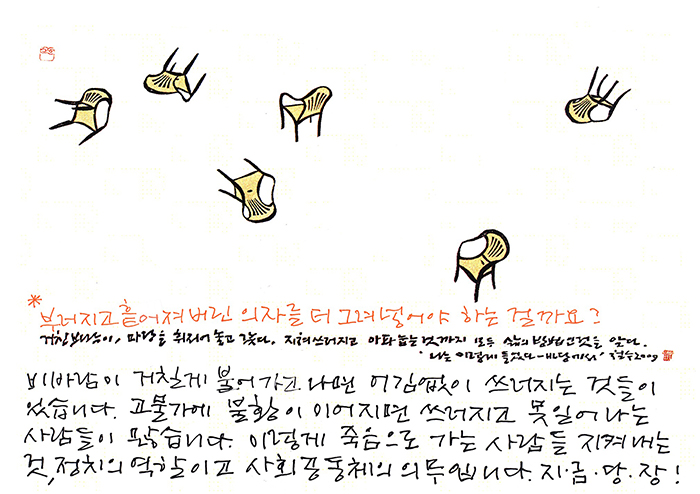 *부러지고 흩어져버린 의자를 더 그려넣어야 하는 걸까요?
거친 비바람이, 마당을 휘저어 놓고 갔다. 지쳐 쓰러지고 아파 눕는 것까지 모두 삶의 것을 안다.
'나는 이렇게 들었다 - 바람에서' 철수 2009
비바람이 거칠게 불어가고 나면 어김없이 쓰러지는 것들이
있습니다. 고물가에 불황이 이어지면 쓰러지고 못일어나는
사람들이 많습니다. 이렇게 죽음으로 가는 사람들 지켜내는
것, 정치의 역할이고 사회공동체의 의무입니다. 지·금·당·장!